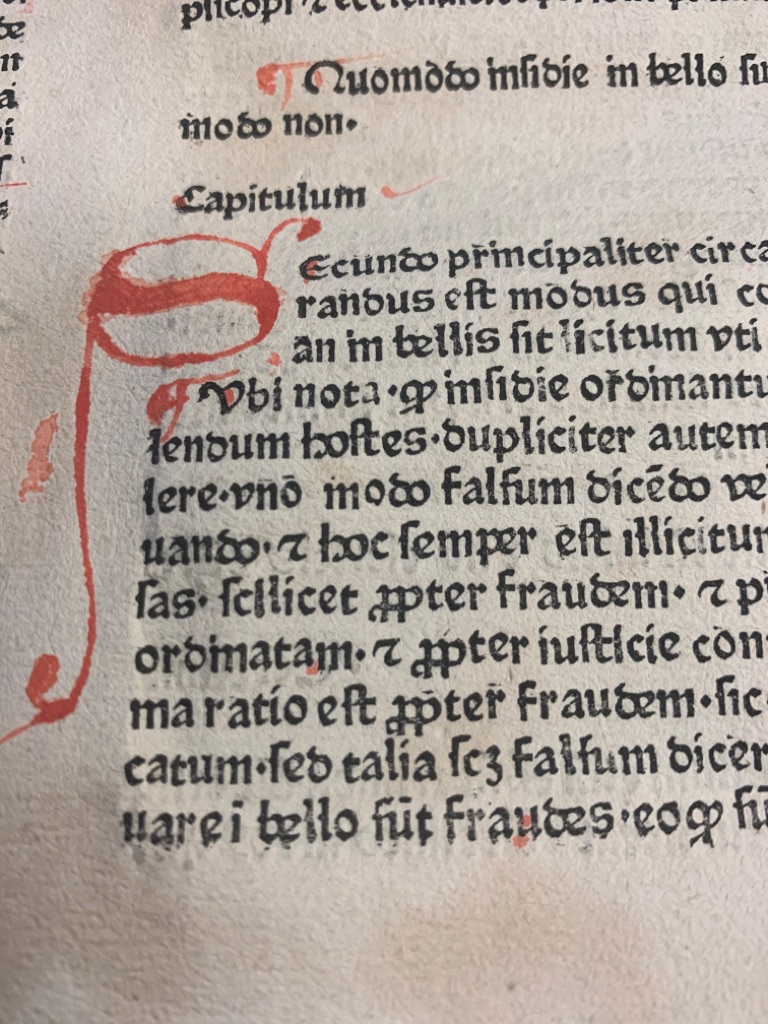 ¶ Quomodo insidie in bello
modo non.
Capitulum
Secundo principaliter circa
randus est modus qui
an in bellis sit licitum vti
¶ Vbi nota . ꝙ insidie ordinantu
lendum hostes . dupliciter autem
lere . vnō modo falsum dicēdo ve
uando . ⁊ hoc semper est illicitum
sas . scilicet ꝓpter fraudem . ⁊
ordinatam . ⁊ ꝓpter iusticie con
ma ratio est ꝓpter fraudem . sic
catum . sed talia scꝫ falsum dicer
uare i bello sūt fraudes . eo ꝙ sū